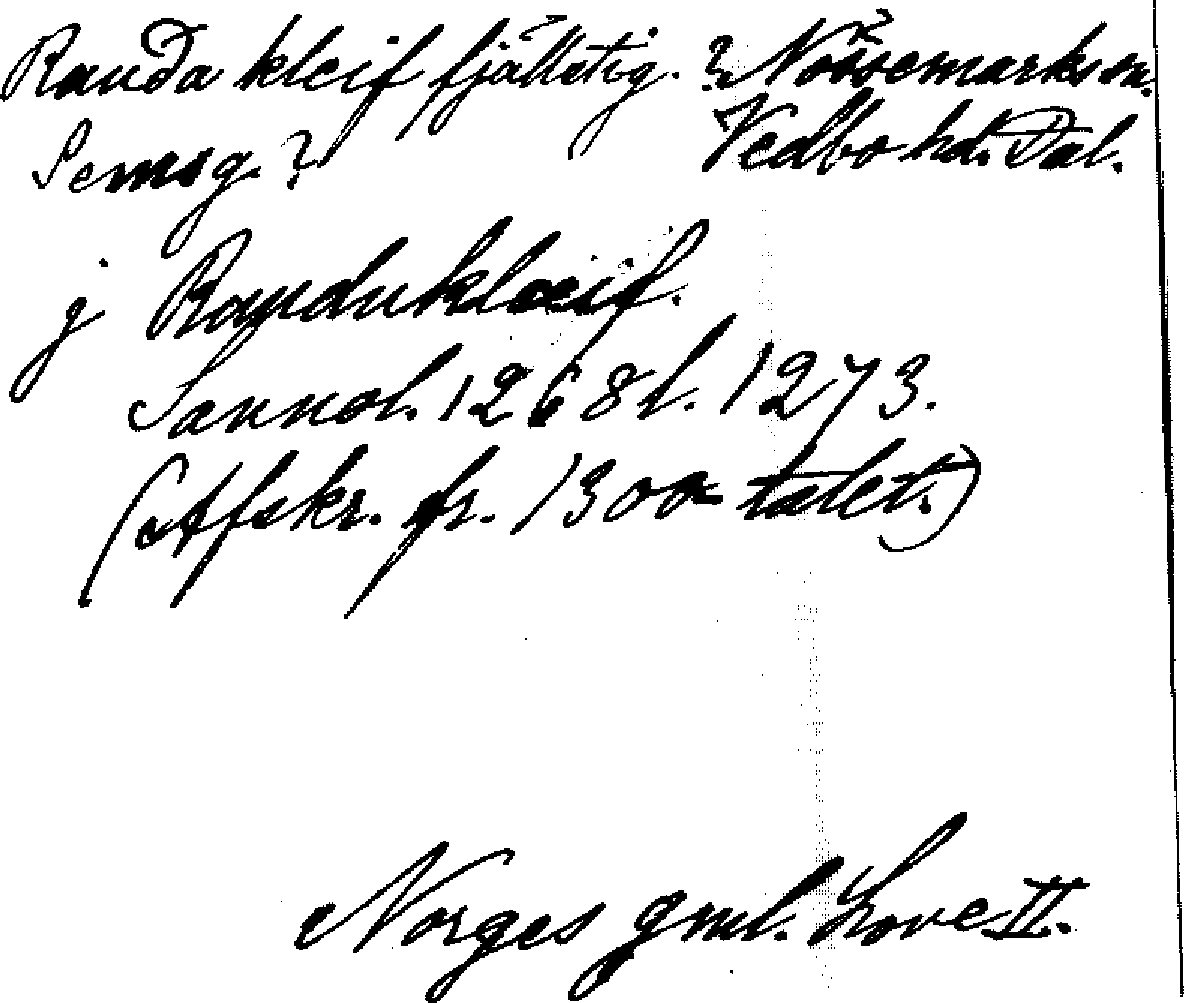 Rauða kleif fjällstig. ? Nössemarks sn.
Semsg. ? Vedbo hd. Dal.
j Raudukleeif.
Sannol. 1268 l. 1273.
(Afskr. fr. 1300-talet.)
Norges gml. Love II.